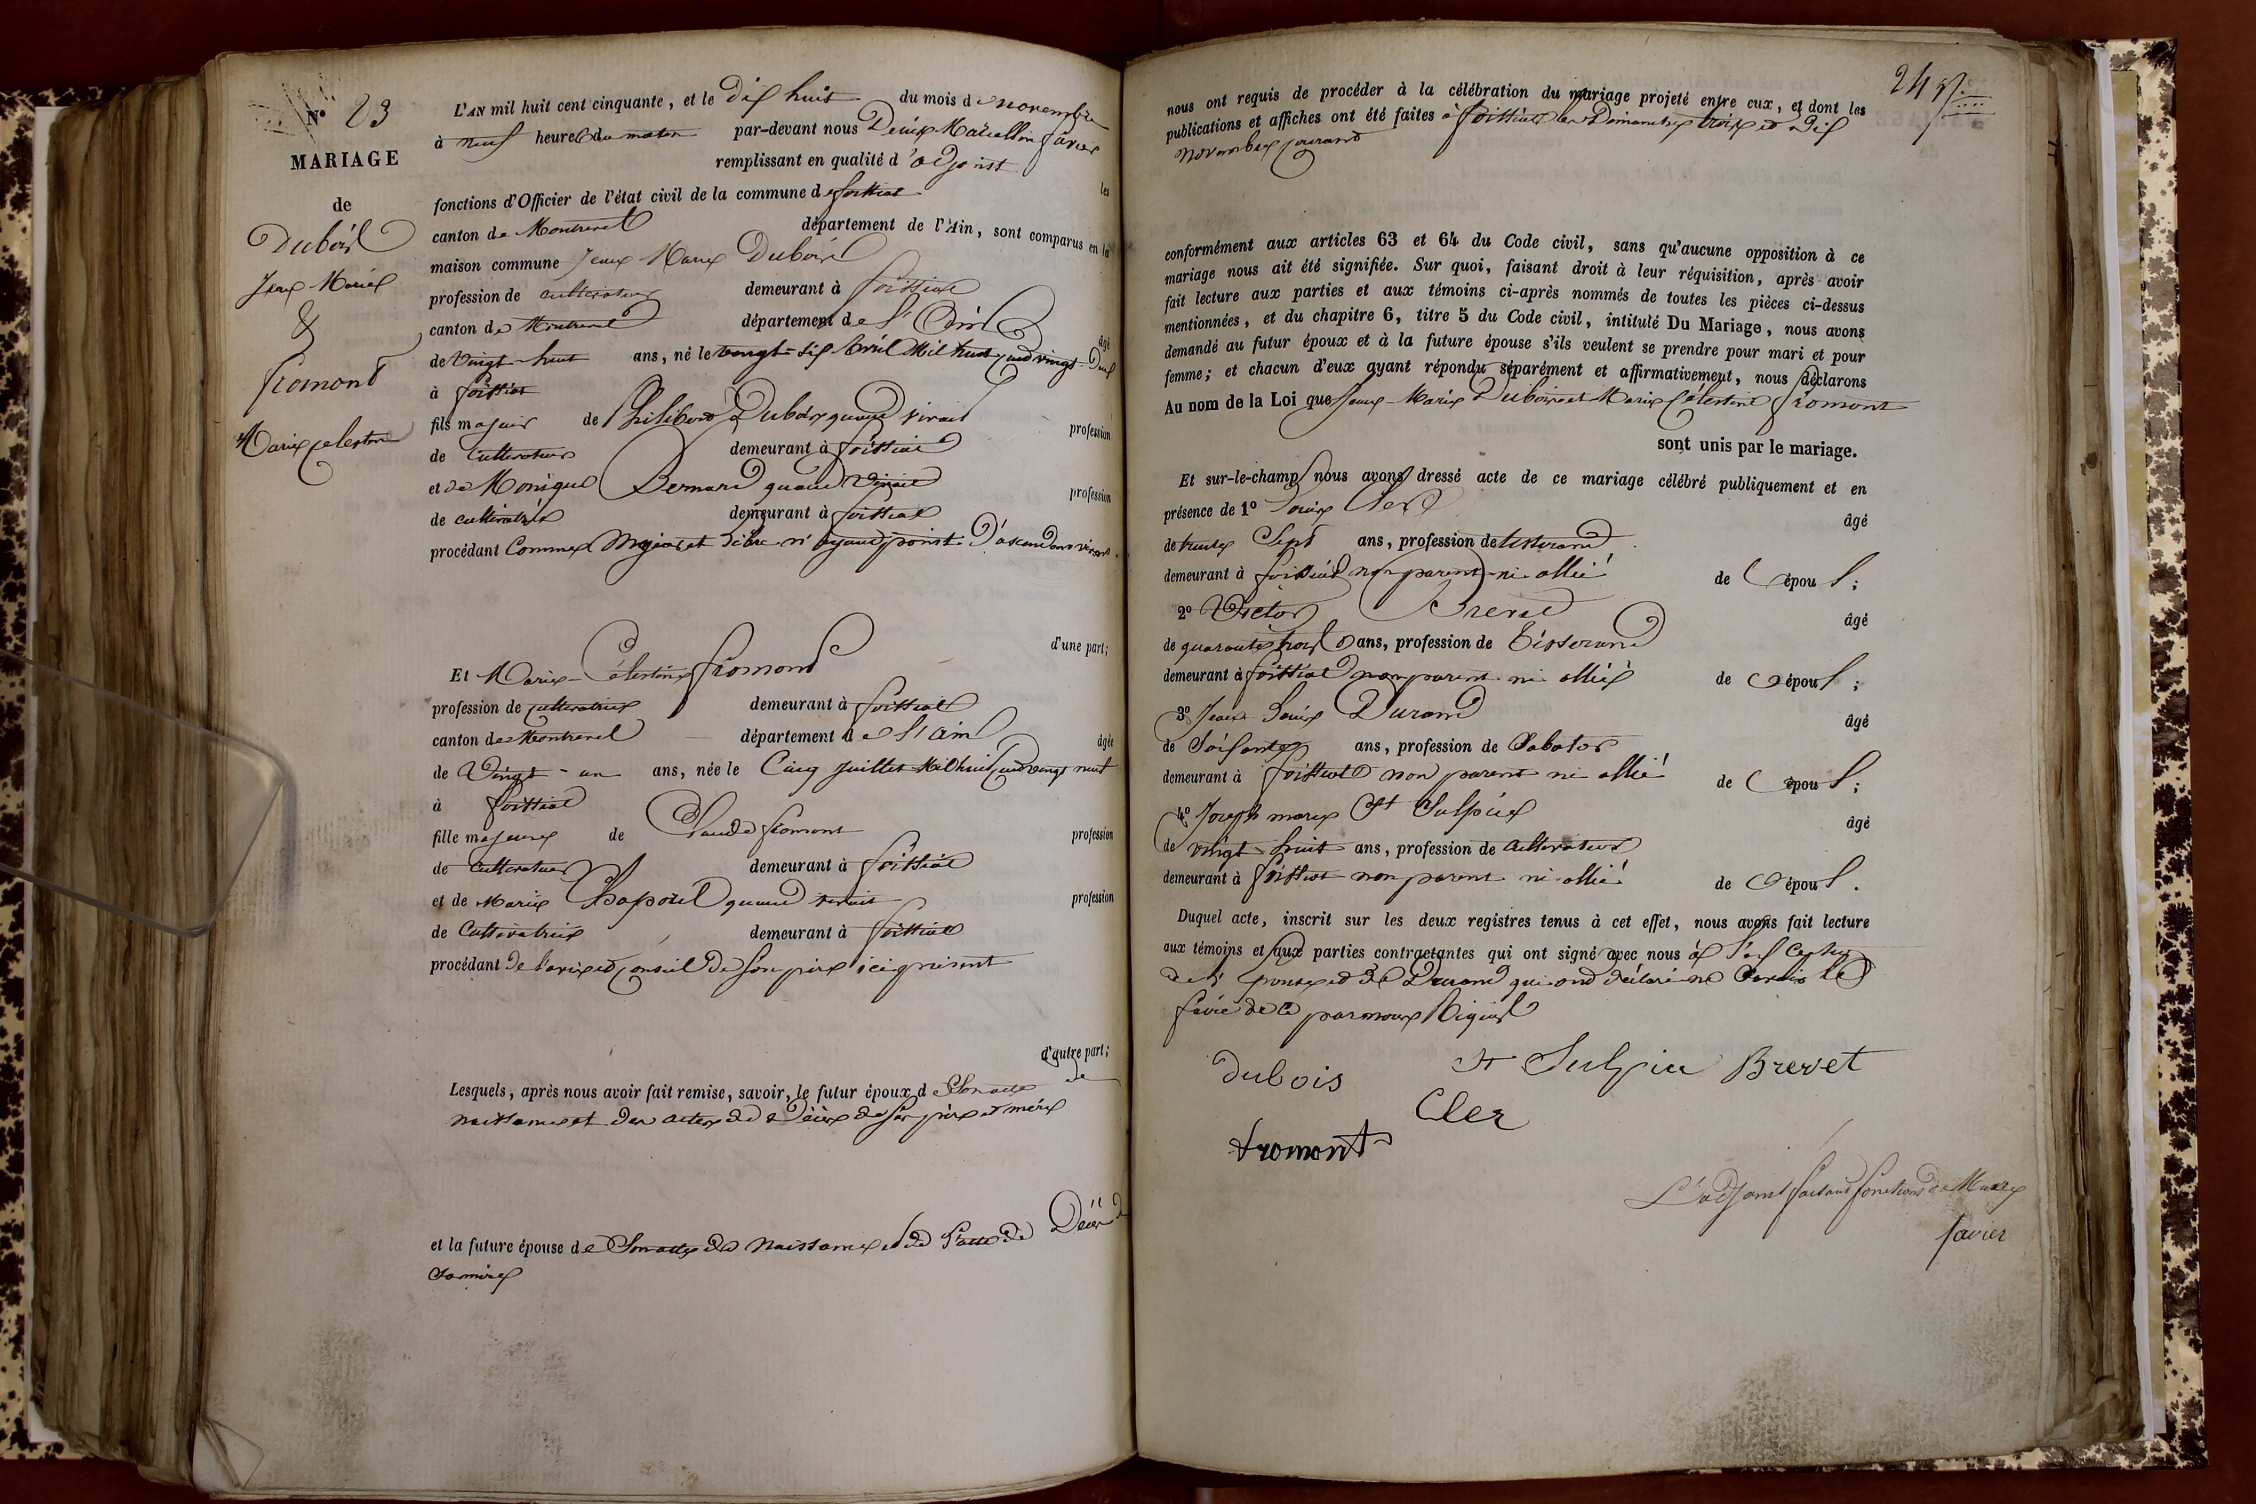 N° 23
MARIAGE
de
Dubois
Jean Marie
&
fromont
Marie Celestine
L'AN mil huit cent cinquante, et le Dix huit du mois de novembre
à neuf heures du matin par-devant nous Denis Marcellin favier
remplissant en qualité d'adjoint les
fonctions d'Officier de l'état civil de la commune de foissiat
canton de Montrevel département de l'Ain, sont comparus en la
maison commune Jean Marie Dubois
profession de cultivateur demeurant à foissiat
canton de Montrevel département de l'Ain âgé
de vingt-huit ans, né le vingt-six avril Mil huit cent vingt-Deux
à foissiat
fils majeur de Philibert Dubois quand vivait profession
de Cultivateur demeurant à foissiat
et de Monique Bernard quand vivait profession
de cultivatrice demeurant à foissiat
procédant Comme Majeur et libre n'ayant point D'ascendans vivans.
d'une part;
Et Marie-Célestine fromont
profession de cultivatrice demeurant à foissiat
canton de Montrevel département de l'ain âgée
de Vingt-un ans, née le Cinq Juillet Mil huit cent vingt neuf
à foissiat
fille majeure de Claude fromont profession
de Cultivateur demeurant à foissiat
et de Marie Chapouel quand vivait profession
de Cultivatrice demeurant à foissiat
procédant de l'avis et conseil de son père ici présent
d'autre part;
Lesquels, après nous avoir fait remise, savoir, le futur époux de Son acte de
naissance et des actes de Décès de ses père et mère
et la future épouse de Son acte de naissance et de l'acte de Décès de
sa mère
248
nous ont requis de procéder à la célébration du mariage projeté entre eux, et dont les
publications et affiches ont été faites à foissiat les Dimanches trois et Dix
novembre courant
conformément aux articles 63 et 64 du Code civil, sans qu'aucune opposition à ce
mariage nous ait été signifiée. Sur quoi, faisant droit à leur réquisition, après avoir
fait lecture aux parties et aux témoins ci-après nommés de toutes les pièces ci-dessus
mentionnées, et du chapitre 6, titre 5 du Code civil, intitulé Du Mariage, nous avons
demandé au futur époux et à la future épouse s'ils veulent se prendre pour mari et pour
femme; et chacun d'eux ayant répondu séparément et affirmativement, nous déclarons
Au nom de la Loi que Jean-Marie Dubois et Marie Célestine fromont
sont unis par le mariage.
Et sur-le-champ nous avons dressé acte de ce mariage célébré publiquement et en
présence de 1° Louis Cler âgé
de trente Sept ans, profession de tisserand
demeurant à foissiat non parent ni allié de Cépoux;
2° Victor Brevet âgé
de quarante trois ans, profession de Tisserand
demeurant à foissiat non parent ni allié de Cépoux;
3° Jean Louis Durand âgé
de Soixante ans, profession de Sabotier
demeurant à foissiat non parent ni allié de Cépoux;
4° Joseph marie St Sulpice âgé
de vingt-huit ans, profession de cultivateur
demeurant à foissiat non parent ni allié de Cépoux.
Duquel acte, inscrit sur les deux registres tenus à cet effet, nous avons fait lecture
aux témoins et aux parties contractantes qui ont signé avec nous à l'exception
de l'épouse et de Durand qui ont déclaré ne Savoir le
faire de ce par nous Requis
Dubois St Sulpice Brevet
Cler
fromont
L'adjoint faisant fonctions de Maire
favier